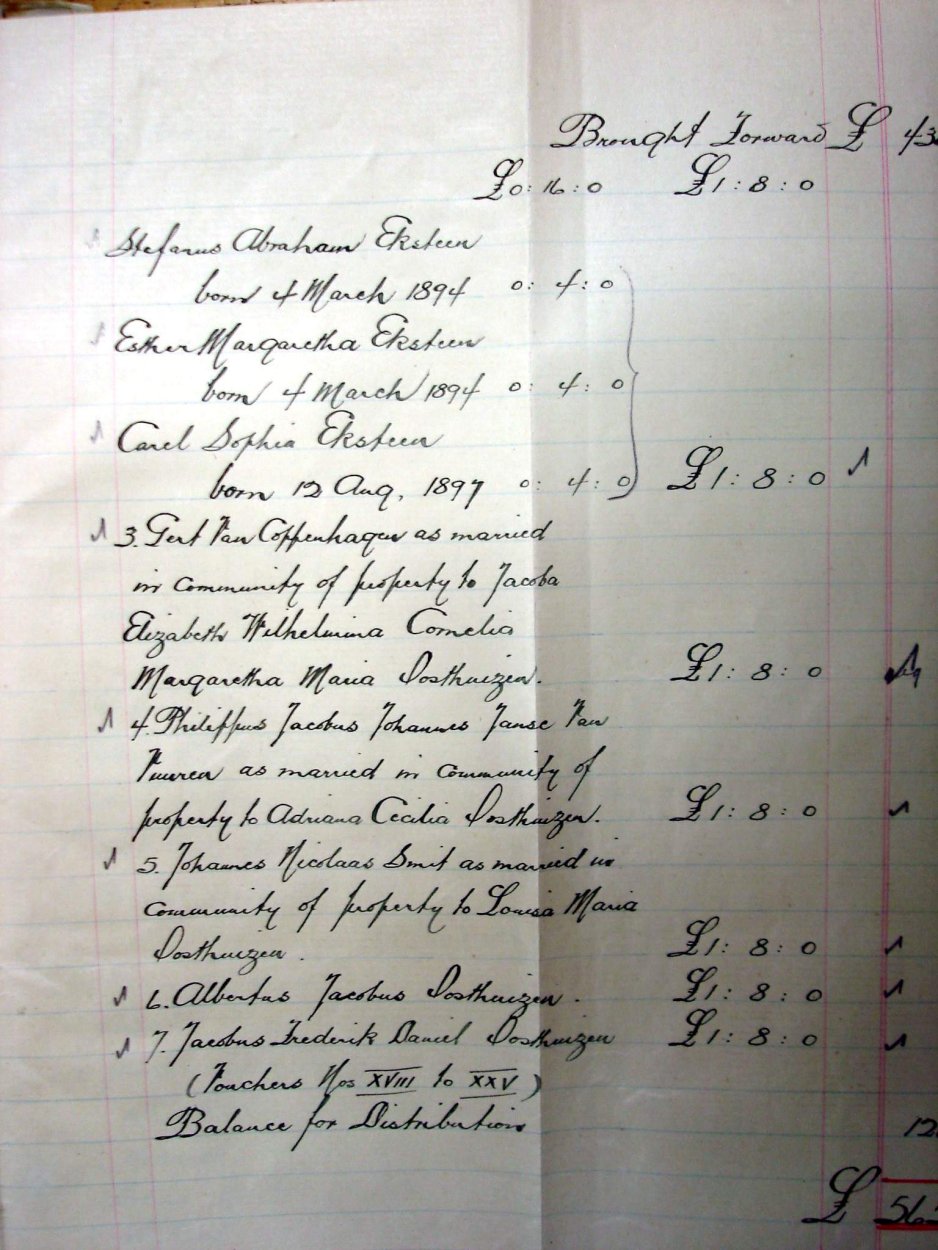 Brought Forward £ 43
£0:16:0 £1:8:0
Stefanus Abraham Eksteen
born 4 March 1894 0:4:0
Esther Margaretha Eksteen
born 4 March 1894 0:4:0
Carel Sophia Eksteen
born 12 Aug, 1897 0:4:0 £1:8:0
3. Gert Van Coppenhagen as married
in community of property to Jacoba
Elizabeth Wilhelmina Cornelia
Margaretha Maria Oosthuizen. £1:8:0
4. Philippus Jacobus Johannes Janse Van
Vuuren as married in community of
property to Adriana Cecilia Oosthuizen. £1:8:0
5. Johannes Nicolaas Smit as married in
community of property to Louisa Maria
Oosthuizen. £1:8:0
6. Albertus Jacobus Oosthuizen. £1:8:0
7. Jacobus Frederik Daniel Oosthuizen £1:8:0
(Vouchers Nos XVIII to XXV)
Balance for Distribution 12
£ 56